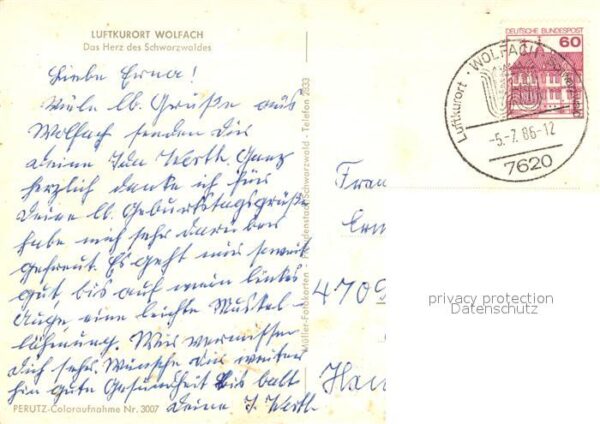 LUFTKURORT WOLFACH
Das Herz des Schwarzwaldes
Liebe Erna!
Viele lb. Grüße aus
Wolfach senden Dir
Deine Ida Werth. Ganz
herzlich danke ich für
Deine lb. Geburtstagsgrüße
habe mich sehr darüber
gefreut. Es geht mir soweit
gut, bis auf mein linkes
Auge eine leichte Muskel
lähmung. Wir vermissen
Dich sehr. Wünsche Dir weiter
hin gute Gesundheit bis balt
Deine I. Werth
PERUTZ-Coloraufnahme Nr. 3007
Müller-Fotokarten - Freudenstadt/Schwarzwald - Telefon 2633
DEUTSCHE BUNDESPOST
60
Luftkurort · WOLFACH
-5.-7.86-12
7620
Frau
4709
privacy protection
Datenschutz